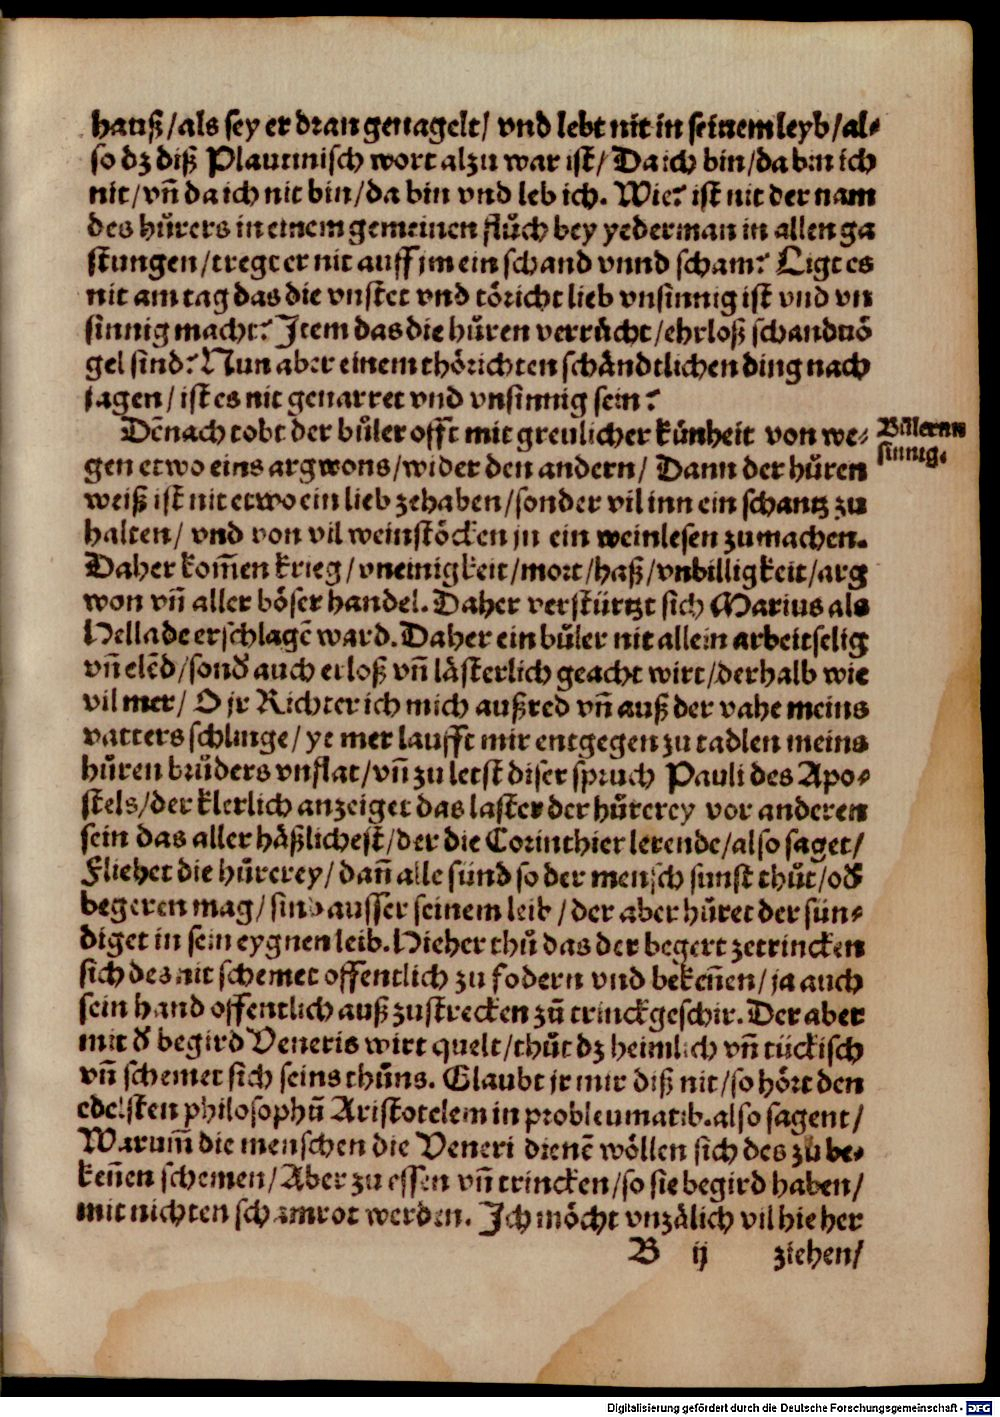 hauß/als sey er dran genagelt/ vnd lebt nit in seinem leyb/al⸗
so dz diß Plautinisch wort alzu war ist/ Da ich bin/da bin ich
nit/vñ da ich nit bin/da bin vnd leb ich. Wie? ist nit der nam
des hůrers in einem gemeinen flůch bey yederman in allen ga
stungen/tregt er nit auff jm ein schand vnnd scham? Ligt es
nit am tag das die vnstet vnd töricht lieb vnsinnig ist vnd vn
sinnig macht? Item das die hůren verrůcht/ehrloß schanduö
gel sind? Nun aber einem thörichten schåndtlichen ding nach
jagen/ist es nit genarret vnd vnsinnig sein?
Dẽnach tobt der bůler offt mit greulicher künheit von we⸗
Bůler vnn
sinnig.
gen etwo eins argwons/wider den andern/ Dann der hůren
weiß ist nit etwo ein lieb zehaben/sonder vil inn ein schantz zu
halten/ vnd von vil weinstöcken jn ein weinlesen zumachen.
Daher kom̃en krieg/vneinigkeit/mort/haß/vnbilligkeit/arg
won vñ aller böser handel. Daher verstürtzt sich Marius als
Hellade erschlagẽ ward. Daher ein bůler nit allein arbeitselig
vñ elẽd/sond̕ auch erloß vñ låsterlich geacht wirt/derhalb wie
vil mer/ O jr Richter ich mich außred vñ auß der vahe meins
vatters schlinge/ye mer laufft mir entgegen zu tadlen meins
hůren brůders vnflat/vñ zu letst diser spruch Pauli des Apo⸗
stels/der klerlich anzeiget das laster der hůrerey vor anderen
sein das aller håßlichest/der die Corinthier lerende/also saget/
Fliehet die hůrerey/dañ alle sünd so der mensch sunst thůt/od̕
begeren mag/sind ausser seinem leib/der aber hůret der sün⸗
diget in sein eygnen leib. Hieher thů das der begert zetrincken
sich des nit schemet offentlich zu fodern vnd bekeñen/ja auch
sein hand offentlich auß zustrecken zů trinckgeschir. Der aber
mit d̕ begird Veneris wirt quelt/thůt dz heimlich vñ tückisch
vñ schemet sich seins thůns. Glaubt jr mir diß nit/so hört den
edelsten philosophũ Aristotelem in probleumatib. also sagent/
Warum̃ die menschen die Veneri dienẽ wöllen sich des zů be⸗
keñen schemen/Aber zu essen vñ trincken/so sie begird haben/
mit nichten schamrot werden. Ich möcht vnzålich vil hieher
B ij ziehen/
Digitalisierung gefördert durch die Deutsche Forschungsgemeinschaft - DFG